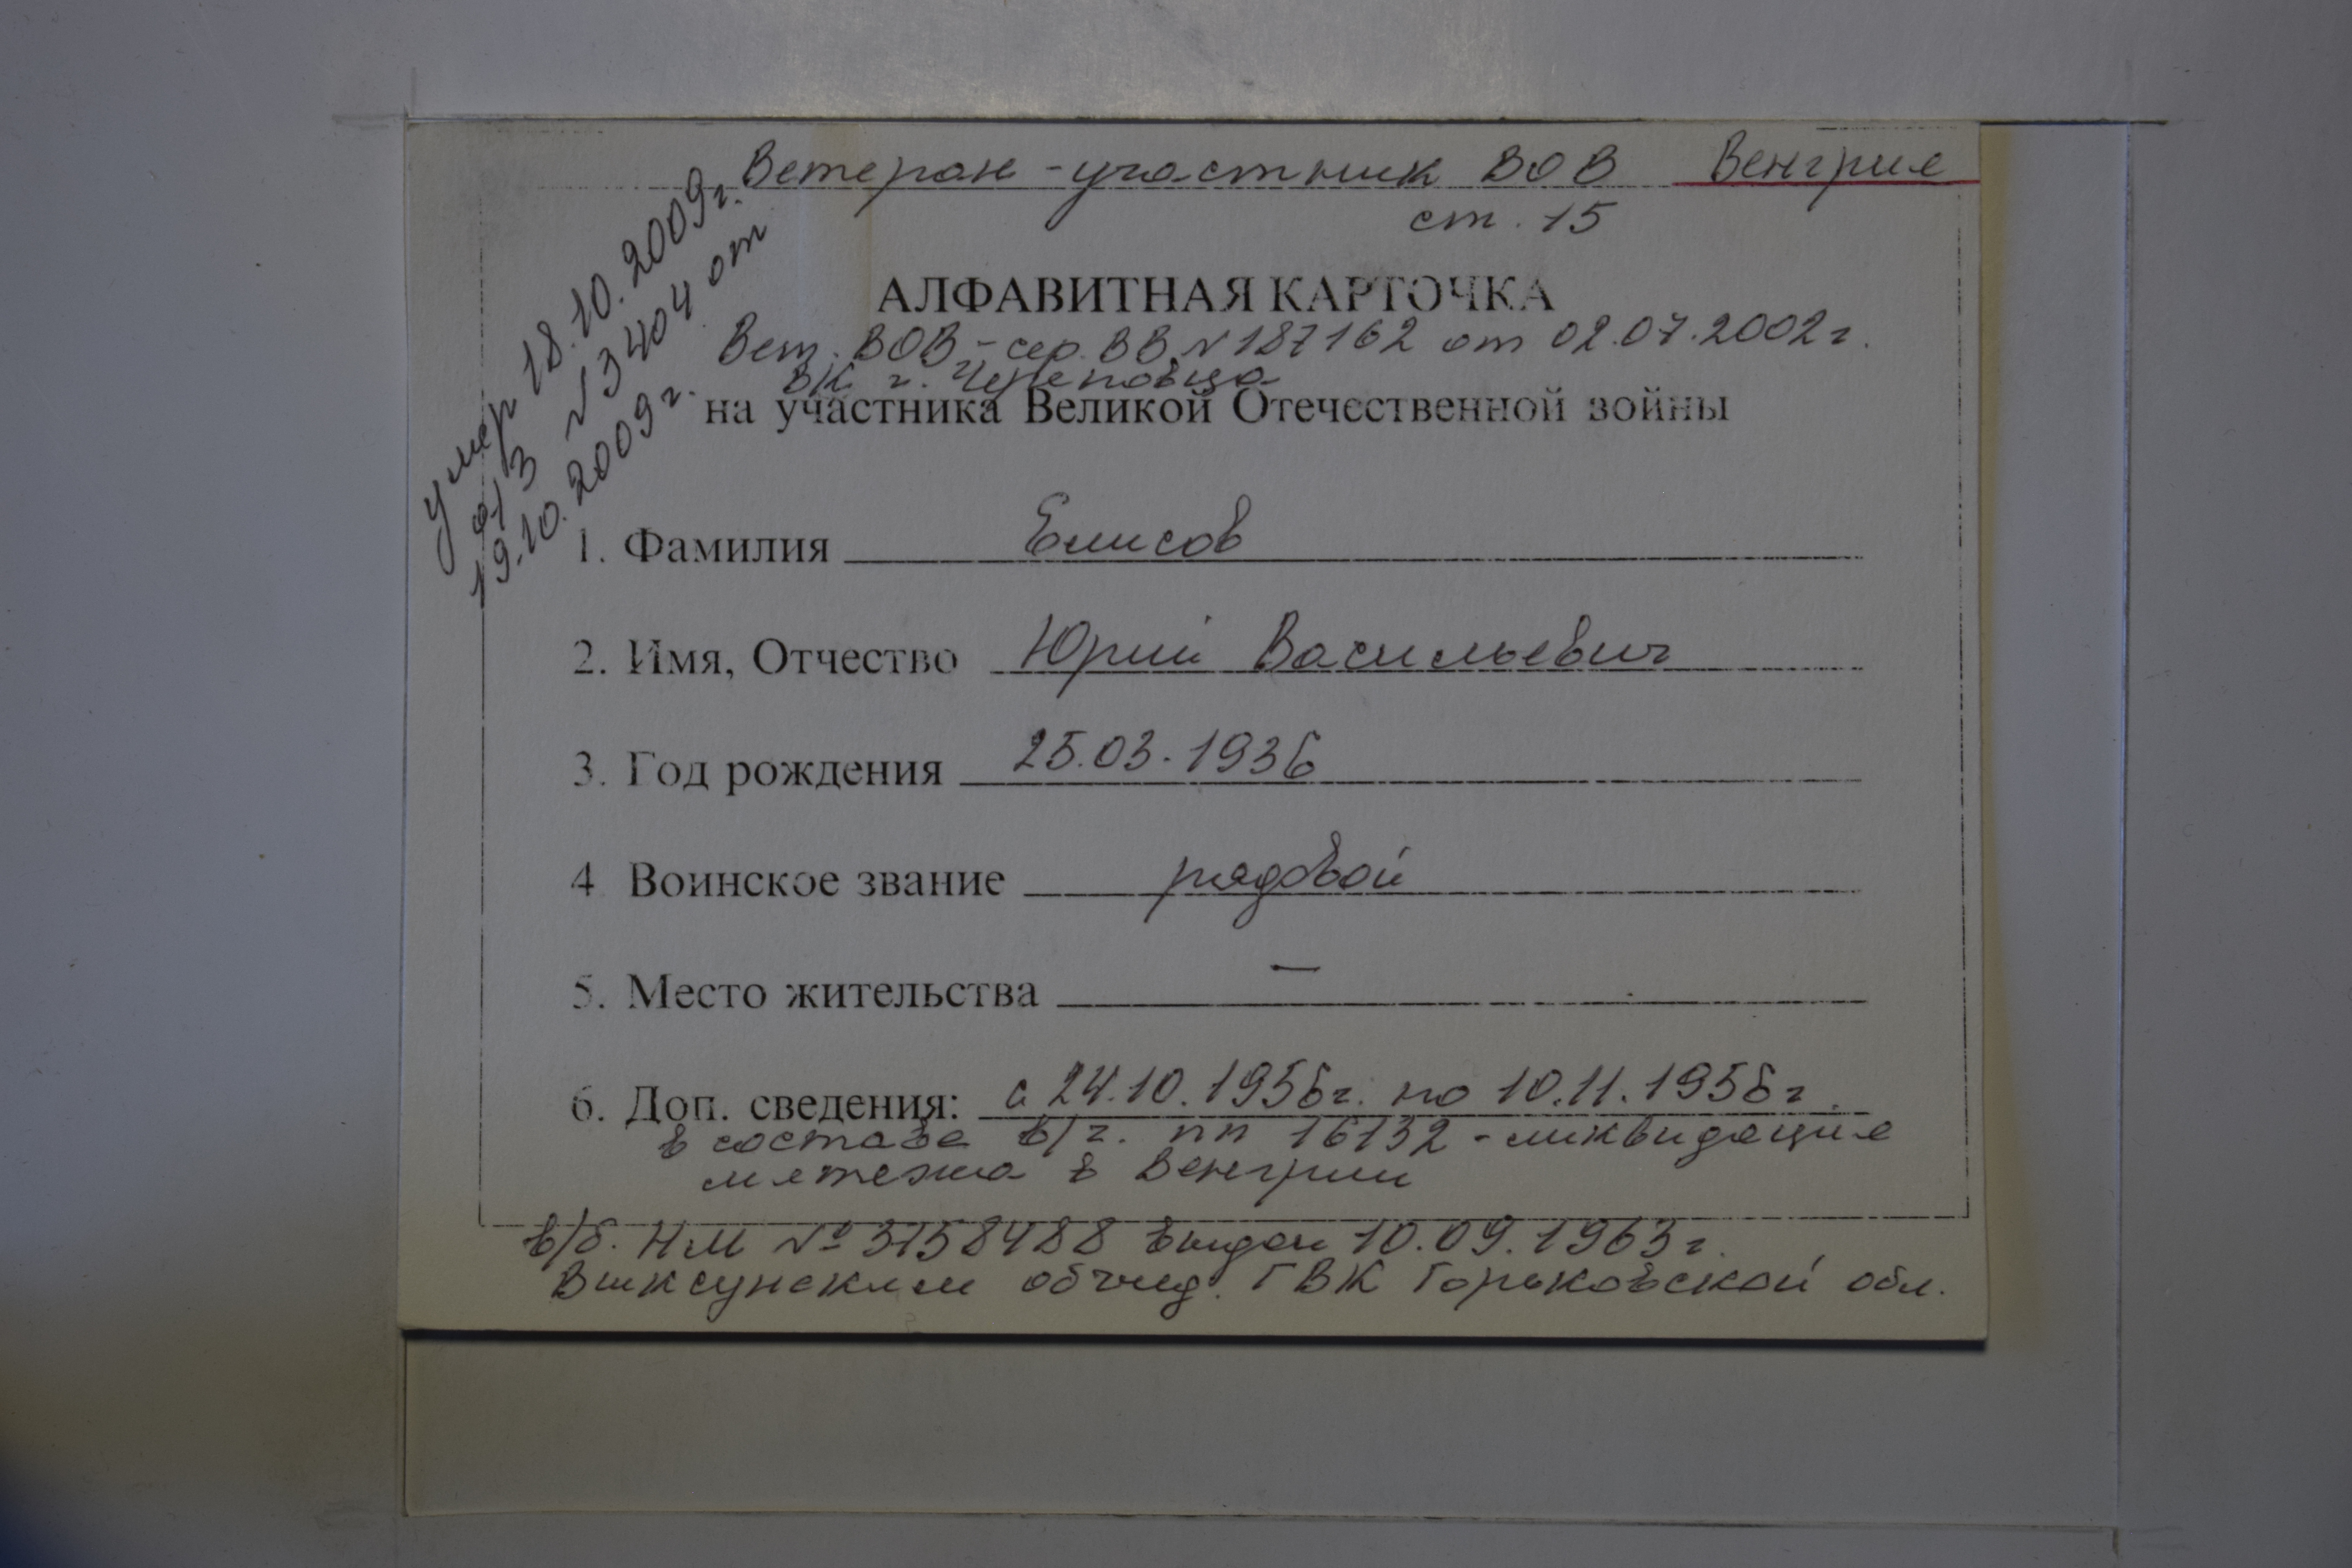 Ветеран - участник ВОВ Венгрия
ст. 15
умер 18.10.2009г.
а/з №3404 от
19.10.2009г.
АЛФАВИТНАЯ КАРТОЧКА
Вет. ВОВ - сер. ВВ №187162 от 02.07.2002г.
ВК г. Череповца
на участника Великой Отечественной войны
1. Фамилия Елисов
2. Имя, Отчество Юрий Васильевич
3. Год рождения 25.03.1936
4 Воинское звание рядовой
5. Место жительства —
6. Доп. сведения: с 24.10.1956г. по 10.11.1956г.
в составе в/ч. пп 16132 - ликвидация
мятежа в Венгрии
в/б. НМ № 3158488 выдан 10.09.1963г.
Выксунским объед. ГВК Горьковской обл.